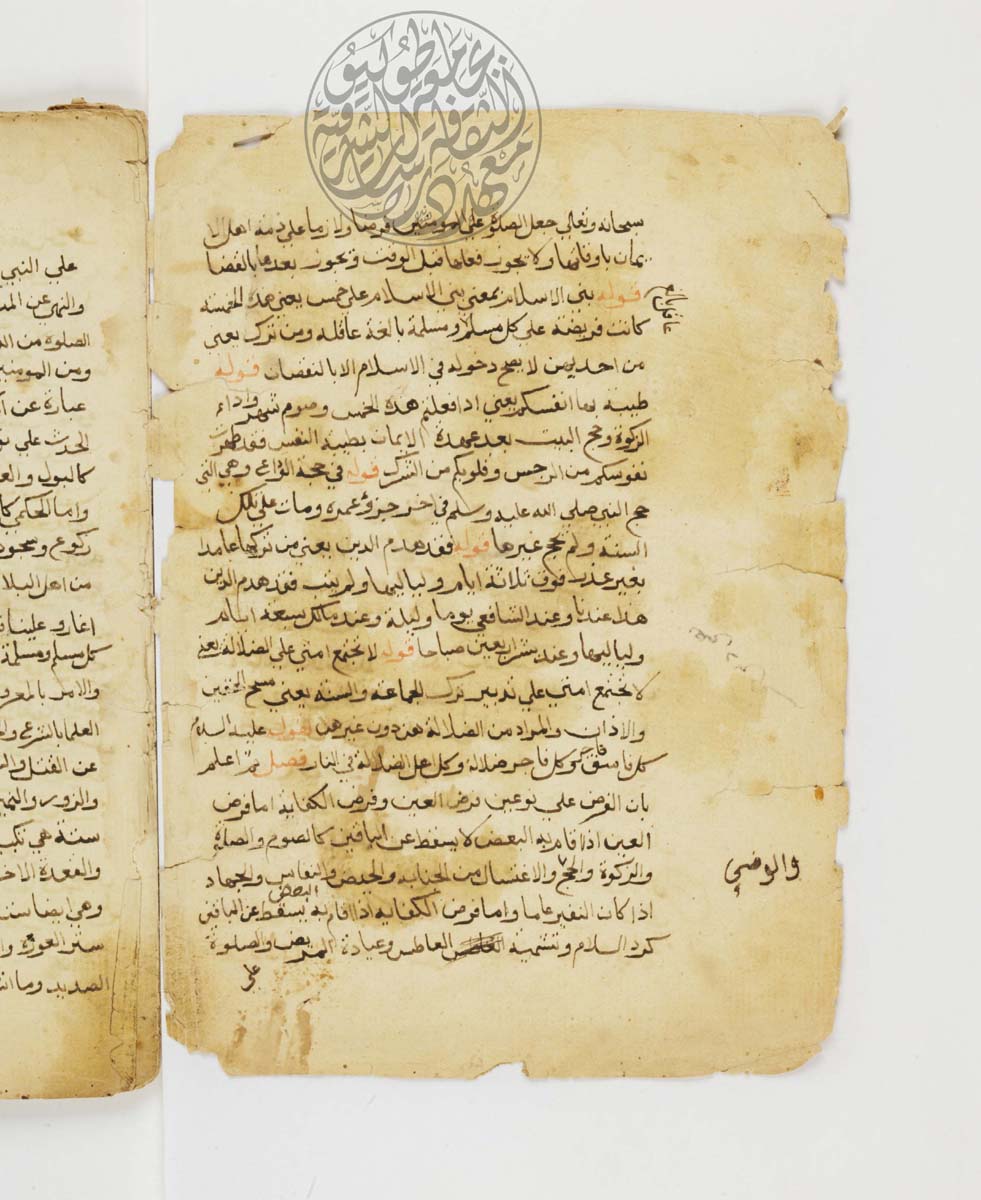 سبحانه وتعالي جعل الصلوة علي المومنين فرضا ولازما علي ذمة اهل الا
يمان باوقاتها ولا يجوز فعلها قبل الوقت ويجوز بعدها بالقضا
قوله بني الاسلام بمعني بني الاسلام علي خمس يعني هذه الخمسة
كانت فريضة علي كل مسلم ومسلمة بالغة عاقلة ومن ترك يعني
من احديهن لا يصح دخوله في الاسلام الا بالنقصان قوله
طيبة بها انفسكم يعني اذا فعلتم هذه الخمس وصوم شهر واداء
الزكوة وحج البيت بعد عهدة الايمان بطيبة النفس فقد طهرت
نفوسكم من الرجس وقلوبكم من الشرك قوله في حجة الوداع وهي التي
حج النبي صلي الله عليه وسلم في اخر عمره ومات علي تلك
السنة ولم يحج غيرها قوله فقد هدم الدين يعني من تركها عامدا
بغير عذر فوق ثلاثة ايام ولياليها ولم يتب فقد هدم الدين
هذا عندنا وعند الشافعي يوما وليلة وعند مالك سبعة ايام
ولياليها وعند بشر اربعين صباحا قوله لا تجتمع امتي علي الضلالة يعني
لا تجتمع امتي علي تدبير ترك الجماعة والسنة يعني مسح الخفين
والاذان والمراد من الضلالة هن دون غيرهن لقوله عليه السلام
كل فاسق فاجر وكل فاجر ضلالة وكل اهل الضلالة في النار فصل ثم اعلم
بان الفرض علي نوعين فرض العين وفرض الكفاية اما فرض
العين اذا قام به البعض لا يسقط عن الباقين كالصوم والصلوة
والزكوة والحج والاغتسال من الجنابة والحيض والنفاس والجهاد
والوضي
اذا كان النفير عاما واما فرض الكفاية اذا قام به البعض يسقط عن الباقين
كرد السلام وتشمية العاطس وعيادة المريض والصلوة
علي
علي النبي
والنهي عن
الصلوة من
ومن المومنين
عبارة عن
الحدث علي
كالبول
واما الحكمي
ركوع وسجود
من اهل
كل مسلم ومسلمة
والامر بالمعروف
العلما بالشرع
عن القتل
والزور
سنة هي
والقعدة
وهي ايضا
ستر العورة
الصديد وما